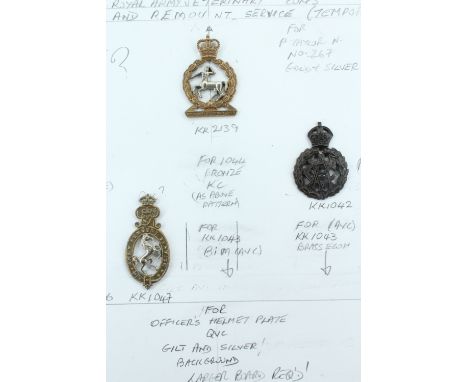 ROYAL ARMY VETERINARY CORPS
AND REMOUNT SERVICE (TEMPO
FOR
P TAYLOR N-
NO-267
GOLD & SILVER
KK2139
FOR 1044
BRONZE
KC
(AS ABOVE
PATTERN)
KK1042
FOR
KK1043
BIM (AVC)
FOR (AVC)
KK1043
BRASS ECON
6 KK1047
FOR
OFFICER'S HELMET PLATE
QVC
GILT AND SILVER!
BACKGROUND
LARGER BOARD REQ'D!